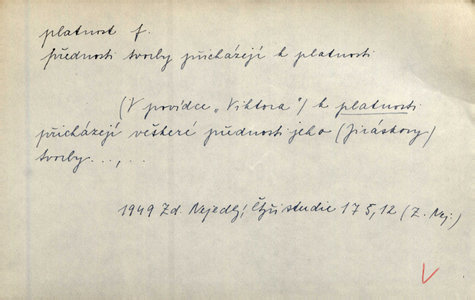 platnost f.
přednosti tvorby přicházejí k platnosti
(V povídce „Viktora") k platnosti
přicházejí veškeré přednosti jeho (Jiráskovy)
tvorby...,..
1949 Zd. Nejedlý, Čtyři studie 175,12 (Z. Nej.)
V